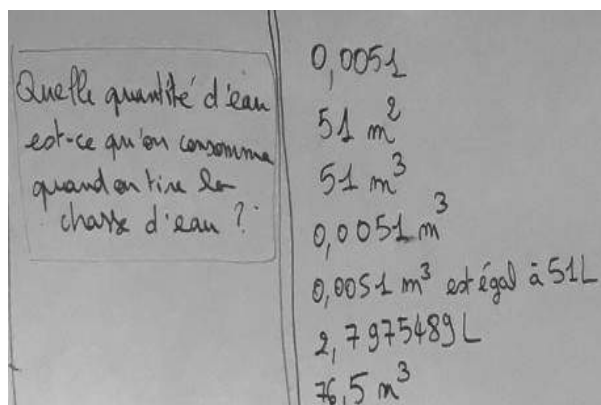 Quelle quantité d'eau
est-ce qu'on consomme
quand on tire la
chasse d'eau ?
0,0051
51 m²
51 m³
0,0051 m³
0,0051 m³ est égal à 51L
2,7975489L
76,5 m³